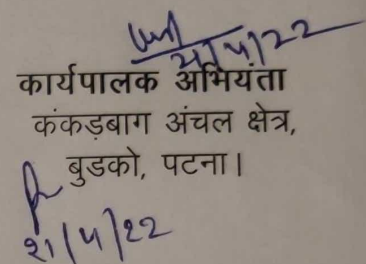 21/4/22
कार्यपालक अभियंता
कंकड़बाग अंचल क्षेत्र,
बुडको, पटना।
21/4/22